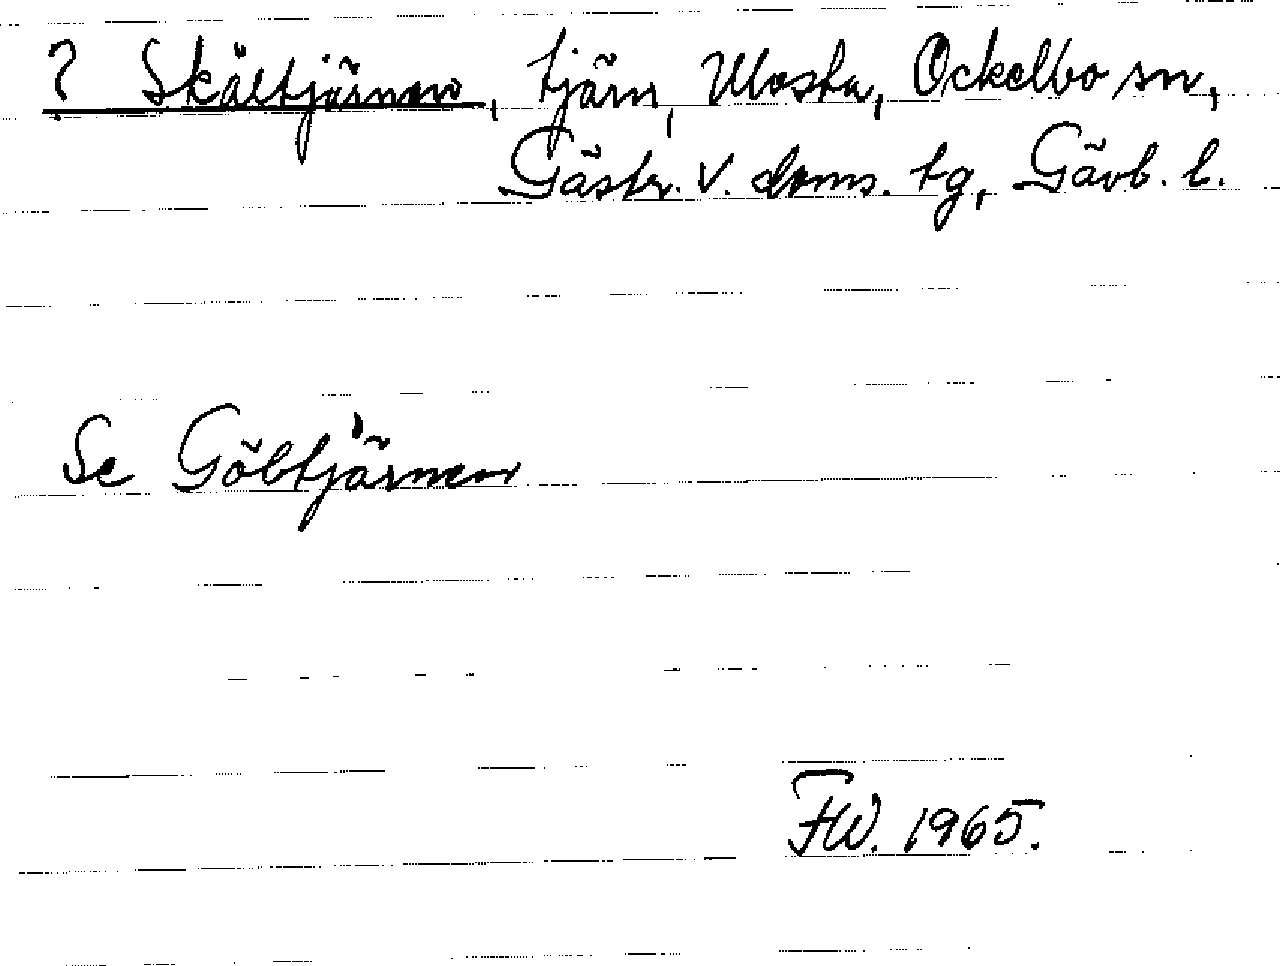 ? Skältjärnen, tjärn, Ulvsta, Ockelbo sn,
Gästr. V. doms. tg, Gävb. l.
Se Göbtjärnen
FW. 1965.